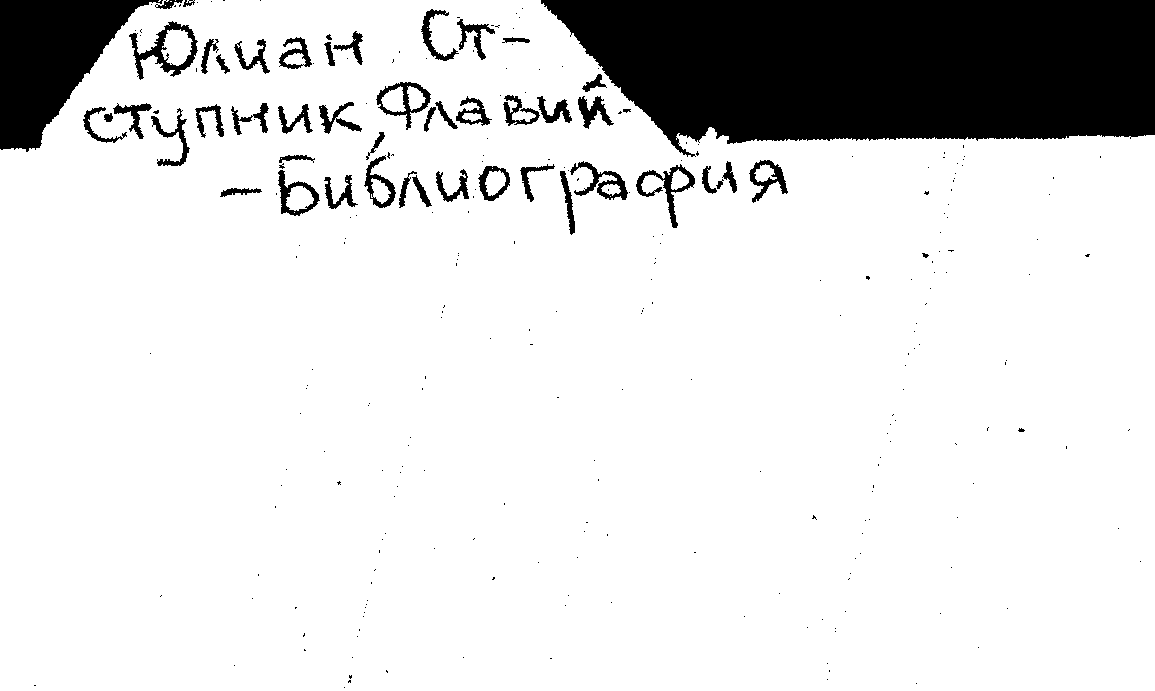 Юлиан От-
ступник, Флавий -
- Библиография